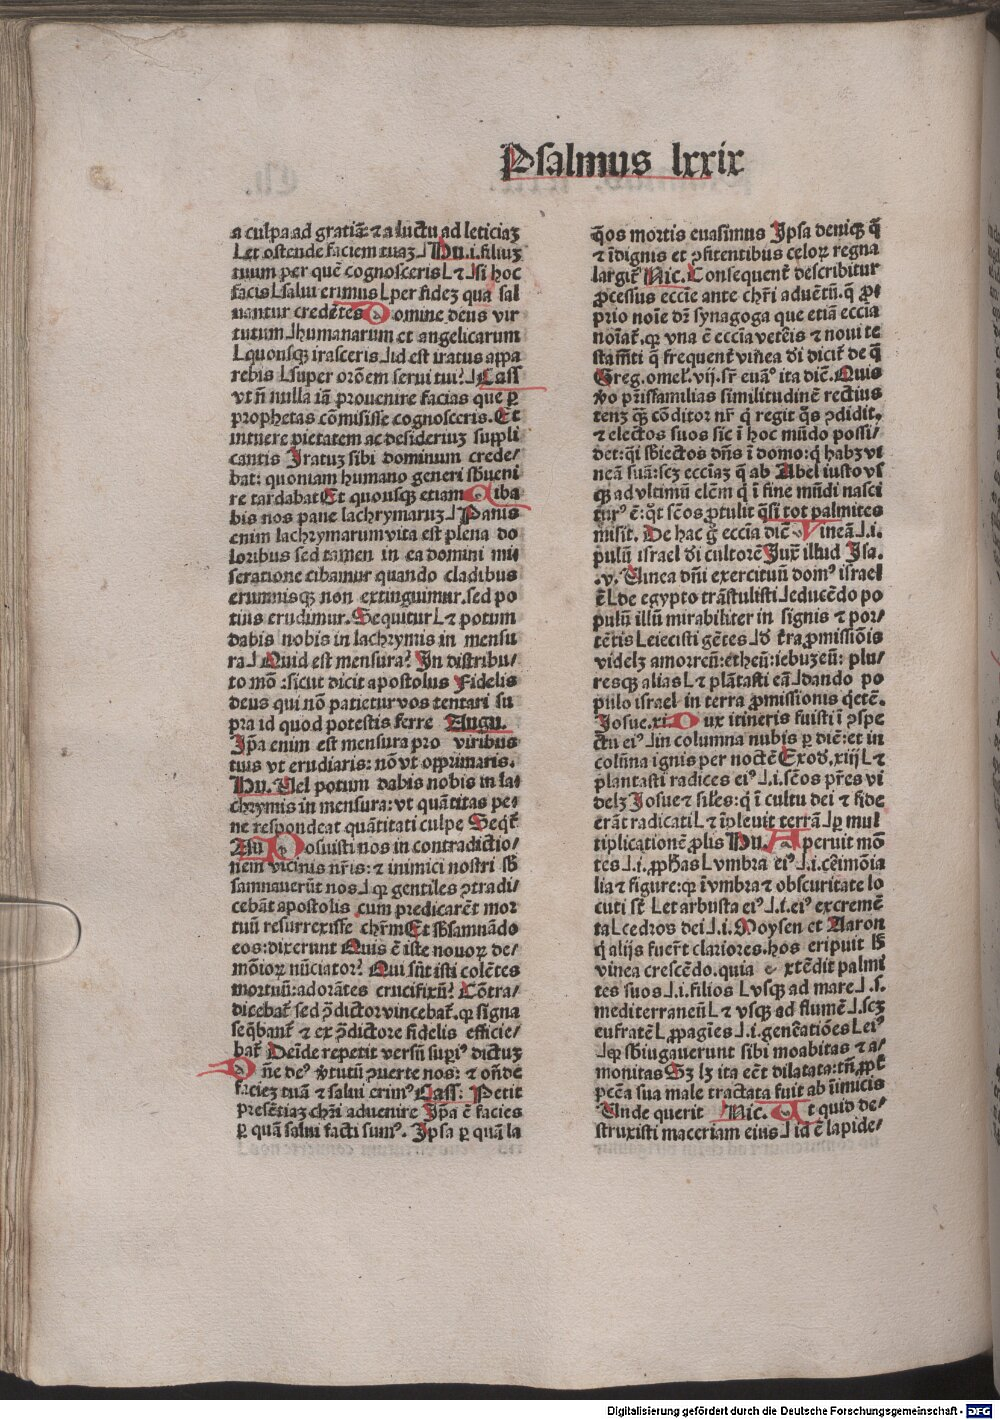 Psalmus lxxix
a culpa ad gratiā ⁊ a luctu ad leticiaȝ
Let ostende faciem tuaȝ⅃ Hu.i.filiuȝ
tuum per quē cognosceris L⁊⅃si hoc
facis Lsalui erimus Lper fideȝ qua sal
uantur credētes Domine deus vir
tutum ⅃humanarum et angelicarum
Lquousqȝ irasceris⅃id est iratus appa
rebis Lsuper orōem serui tui?⅃Cass
vt ñ nulla iā prouenire facias que ꝑ
prophetas cōmisisse cognosceris. Et
intuere pietatem ac desideriuȝ suppli
cantis Iratuȝ sibi dominum crede/
bat: quoniam humano generi sb̄ueni
re tardabat Et quousqȝ etiam Ciba
bis nos pane lachrymaruȝ⅃Panis
enim lachrymarum vita est plena do
loribus sed tamen in ea domini mi
seratione cibamur quando cladibus
erumnisqȝ non extinguimur. sed po
tius erudimur. Sequitur L⁊ potum
dabis nobis in lachrymis in mensu
ra⅃ Quid est mensura? In distribu/
to mō :sicut dicit apostolus Fidelis
deus qui nō patietur vos tentari su
pra id quod potestis ferre Augu.
Ip̄a enim est mensura pro viribus
tuis vt erudiaris: nō vt opprimaris.
Hu. Uel potum dabis nobis in la/
chrymis in mensura: vt quātitas pe/
ne respondeat quātitati culpe Seqt̄
Au Posuisti nos in contradictio/
nem vicinis nr̄is: ⁊ inimici nostri sb̄
sannauerūt nos⅃qꝛ gentiles ꝯtradi/
cebāt apostolis cum predicarēt mor
tuū resurrexisse chr̄m Et sb̄sannādo
eos: dixerunt Quis ē iste nouoꝝ de/
mōioꝝ nūciator? Qui sūt isti colētes
mortuū: adorātes crucifixū? Cōtra/
dicebat̄ sed p̄dictor vincebat̄. qꝛ signa
seqbant̄ ⁊ ex p̄dictore fidelis efficie/
bat̄ Deīde repetit versū supiꝰ dictuȝ
Dn̄e deꝰ v̓tutū ꝯuerte nos: ⁊ oñde
facieȝ tuā ⁊ salui erimꝰ Cass: Petit
presētiaȝ chr̄i aduenire Ip̄a ē facies
ꝑ quā salui facti sumꝰ. Ipsa ꝑ quā la
q̄os mortis euasimus Ipsa deniqȝ q̄
⁊ īdignis et ꝯfitentibus celoꝝ regna
largit̄ Nic. Consequent̄ describitur
ꝓcessus eccīe ante chr̄i aduētū. q̄ ꝓ/
prio noīe dȝ synagoga que etiā eccīa
noīat̄. qꝛ vna ē eccīa veteris ⁊ noui te
stamēti q̄ frequent̄ vīnea di dicit̄ de q̄
Greg. omeł. vij. sr̄ euāꝰ ita diē. Quis
v̓o pr̄isfamilias similitudinē rectius
tenȝ qȝ cōditor nr̄ q̄ regit q̄s ꝯdidit.
⁊ electos suos sic ī hoc mūdo possi/
det: qi sb̄iectos dñs ī domo: q̄ habȝ vi
neā suā: scȝ eccīaȝ q̄ ab Abel iusto vs
qȝ ad vltimū elem̄ q̄ ī fine mūdi nasci
turꝰ ē: qt̄ sc̄os ꝓtulit qsi tot palmites
misit. De hac g̊ eccīa diē Vineā⅃.i.
pulū israel di cultorē Iux̄ illud Isa.
.v. Uinea dn̄i exercituū domꝰ israel
ē Lde egypto trāstulisti⅃educēdo po
pulū illū mirabiliter in signis ⁊ por/
tētis Leiecisti gētes⅃d̄ t̄ra ꝓmissiōis
videlȝ amorreū: etheū: iebuzeū: plu/
resqȝ alias L⁊ plātasti eā⅃dando po
pulo israel in terra ꝓmissionis qetē.
Iosue.xi Dux itineris fuisti ī ꝯspe
ctu eiꝰ⅃in columna nubis ꝑ diē: et in
colūna ignis per noctē Exod̄.xiij L⁊
plantasti radices eiꝰ⅃.i. sc̄os pr̄es vi
delȝ Iosue ⁊ siłes: q̄ ī cultu dei ⁊ fide
erāt radicati L⁊ īpleuit terrā⅃ꝑ mul
tiplicationē ꝓlis Hu. Aperuit mō
tes⅃.i. ꝓph̄as Lvmbra eiꝰ⅃.i. cēimōia
lia ⁊ figure: qꝛ īvmbra ⁊ obscuritate lo
cuti st̄ Let arbusta eiꝰ⅃.i. eiꝰ excremē
ta Lcedros dei⅃.i. Moysen et Aaron
q̄ alijs fuer̄t clariores. hos eripuit ls̄
vinea crescēdo. quia extēdit palmi
tes suos⅃.i. filios Lvsqȝ ad mare⅃.s.
mediterraneū L⁊ vsqȝ ad flumē⅃.scȝ
eufratē L ꝓpagīes⅃.i. genēatiōes Leiꝰ
⅃qꝛ sb̄iugauerunt sibi moabitas ⁊ a/
monitas Sȝ lȝ ita eēt dilatata: tn̄. ꝓpt̄
pc̄ēa sua male tractata fuit ab īimicis
Unde querit Nic. At quid de/
struxisti maceriam eius⅃id ē lapide/
Digitalisierung gefördert durch die Deutsche Forschungsgemeinschaft - DFG